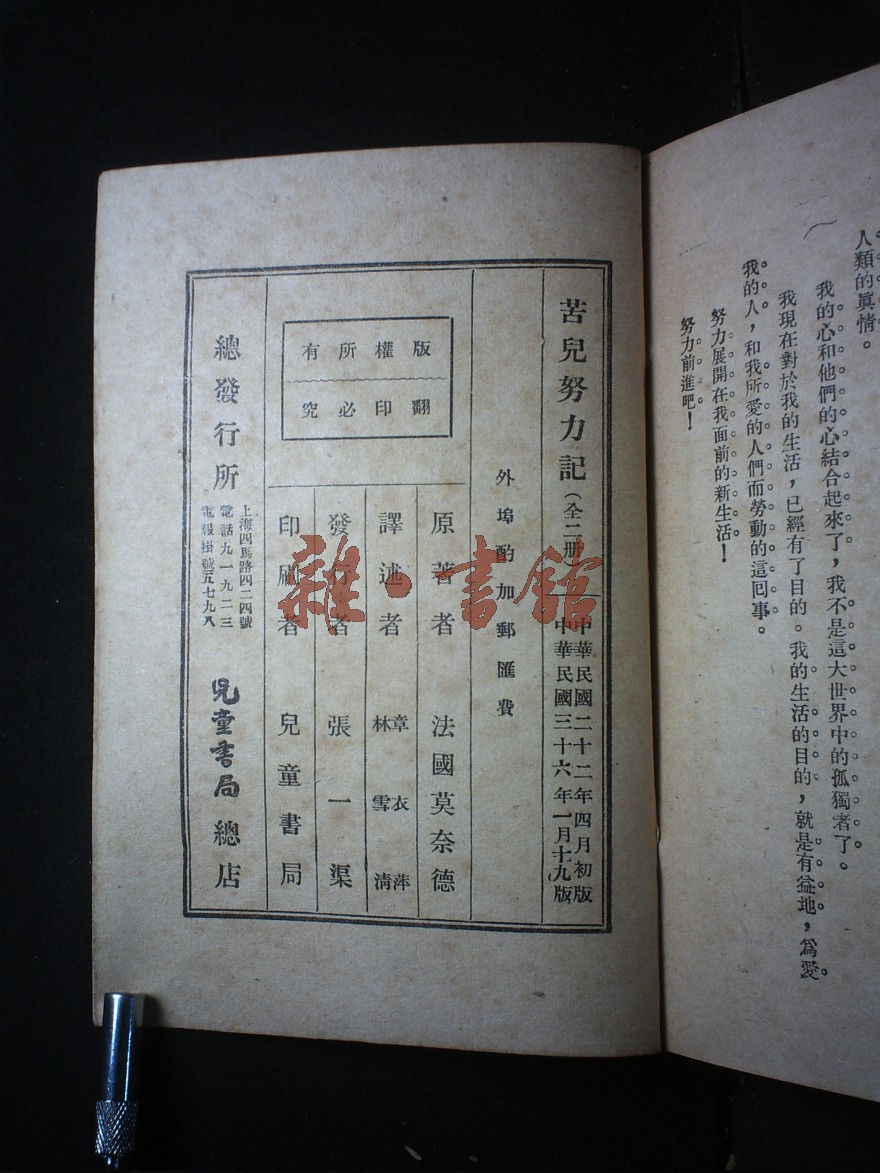 人類的眞情。
我的心和他們的心結合起來了，我不是這大世界中的孤獨者了。
我現在對於我的生活，已經有了目的。我的生活的目的，就是有益地，爲愛
我的人，和我所愛的人們而勞動的這囘事。
努力展開在我面前的新生活！
努力前進吧！
苦兒努力記（全二册）
中華民國二十二年四月初版
中華民國三十六年一月十九版
外埠酌加郵匯費
版權所有
翻印必究
原著者 法國莫奈德
譯述者 章衣萍
林雪清
發行者 張一渠
印刷者 兒童書局
總發行所
上海四馬路四二四號
電話九一九二三
電報掛號五七九八
兒童書局總店
雜·書館